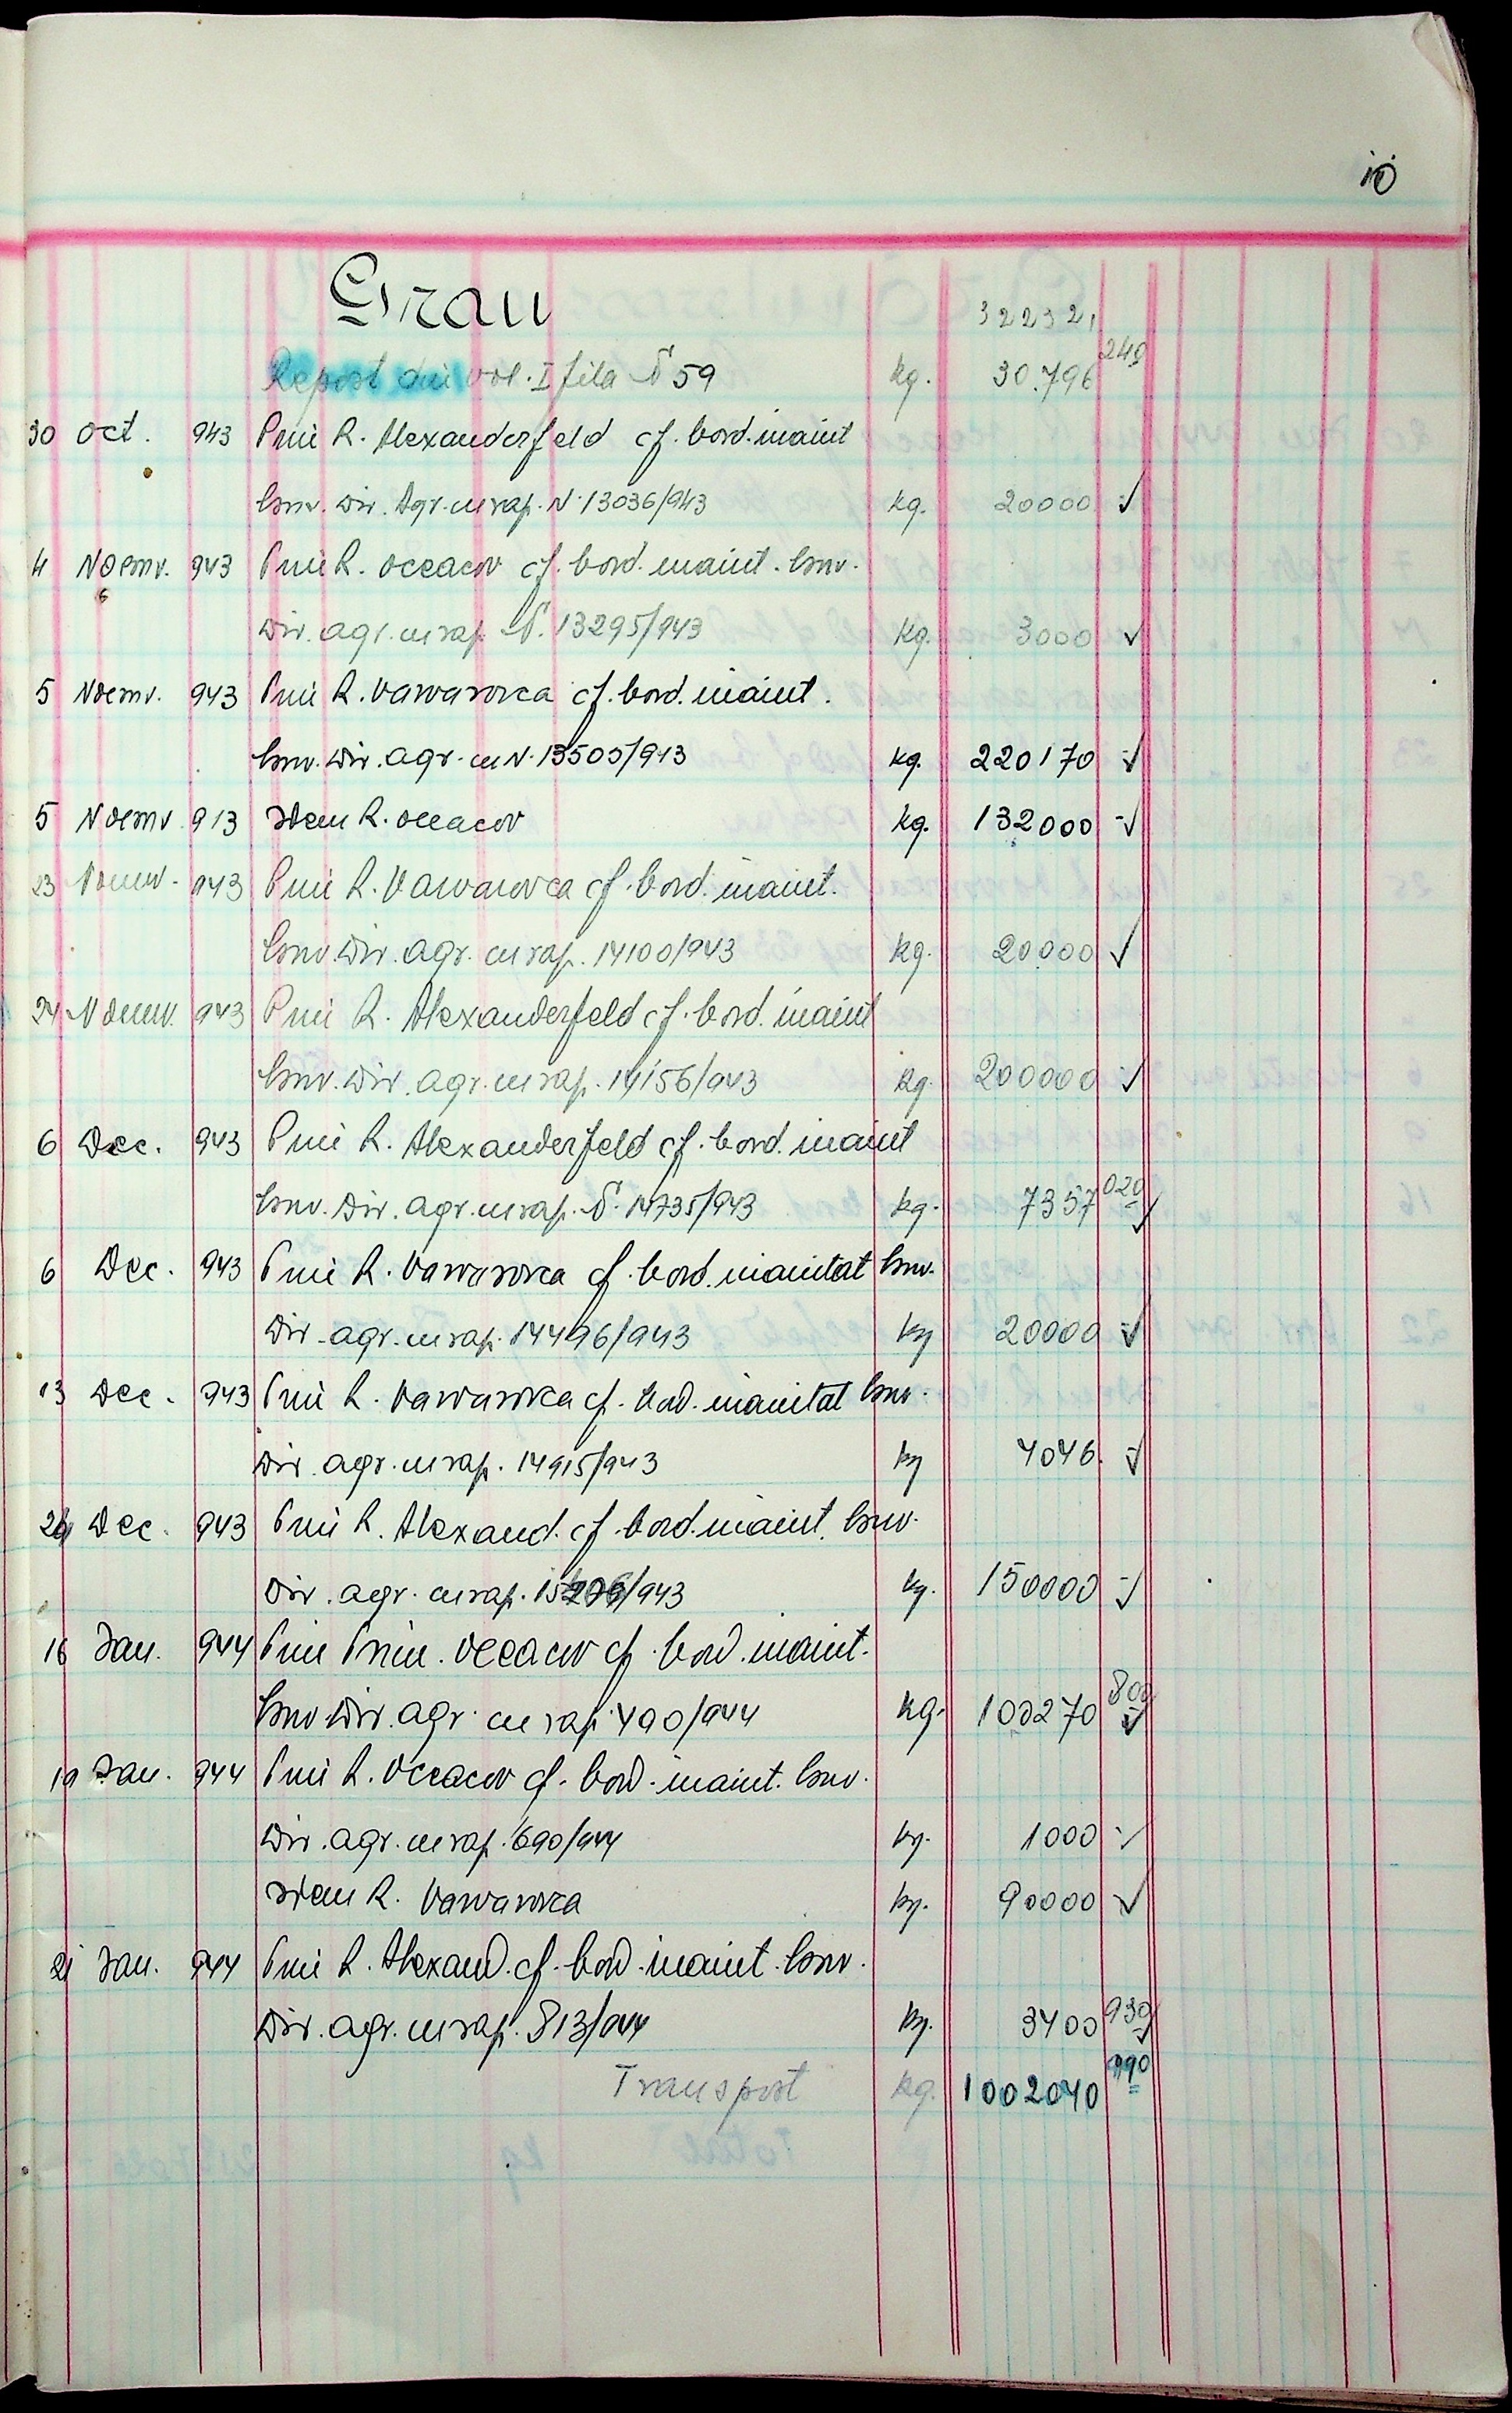 10
Grau
32232,
Report din vol. I fila № 59 kg. 30.796 240
30 Oct. 943 Prin R. Alexanderfeld cf. bord. inaint
Insp. Dir. Agr. cu rap. N. 13036/943 kg. 20000
4 Noemv. 943 Prin R. Oceacov cf. bord. inaint.
Dir. agr. cu rap. N. 13295/943 kg. 3000
5 Noemv. 943 Prin R. Varvarovca cf. bord. inaint.
Dir. agr. cu N. 13505/943 kg. 220170
5 Noemv 943 Idem R. Oceacov kg. 132000
23 Noemv. 943 Prin R. Varvarovca cf. bord. inaint.
Dir. agr. cu rap. 14100/943 kg. 20000
24 Noemv. 943 Prin R. Alexanderfeld cf. bord. inaint
Dir. agr. cu rap. 14156/943 kg. 200000
6 Dec. 943 Prin R. Alexanderfeld cf. bord. inaint
Dir. agr. cu rap. N. 14735/943 kg. 7357 020
6 Dec. 943 Prin R. Varvarovca cf. bord. inaintat
Dir. agr. cu rap. 14496/943 kg 20000
13 Dec. 943 Prin R. Varvarovca cf. bord. inaintat
Dir. agr. cu rap. 14915/943 kg 4046
Dec. 943 Prin R. Alexand. cf. bord. inaint.
Dir. agr. cu rap. /943 kg. 150000
16 Jan. 944 Prin Prim. Oceacov cf. bord. inaint.
Dir. agr. cu rap. 490/944 kg. 100270 800
19 Jan. 944 Prin R. Oceacov cf. bord. inaint.
Dir. agr. cu rap. 690/944 kg. 1000
Idem R. Varvarovca kg. 90000
21 Jan. 944 Prin R. Alexand. cf. bord. inaint.
Dir. agr. cu rap. 813/944 kg. 3400 930
Transport kg. 1002040 990